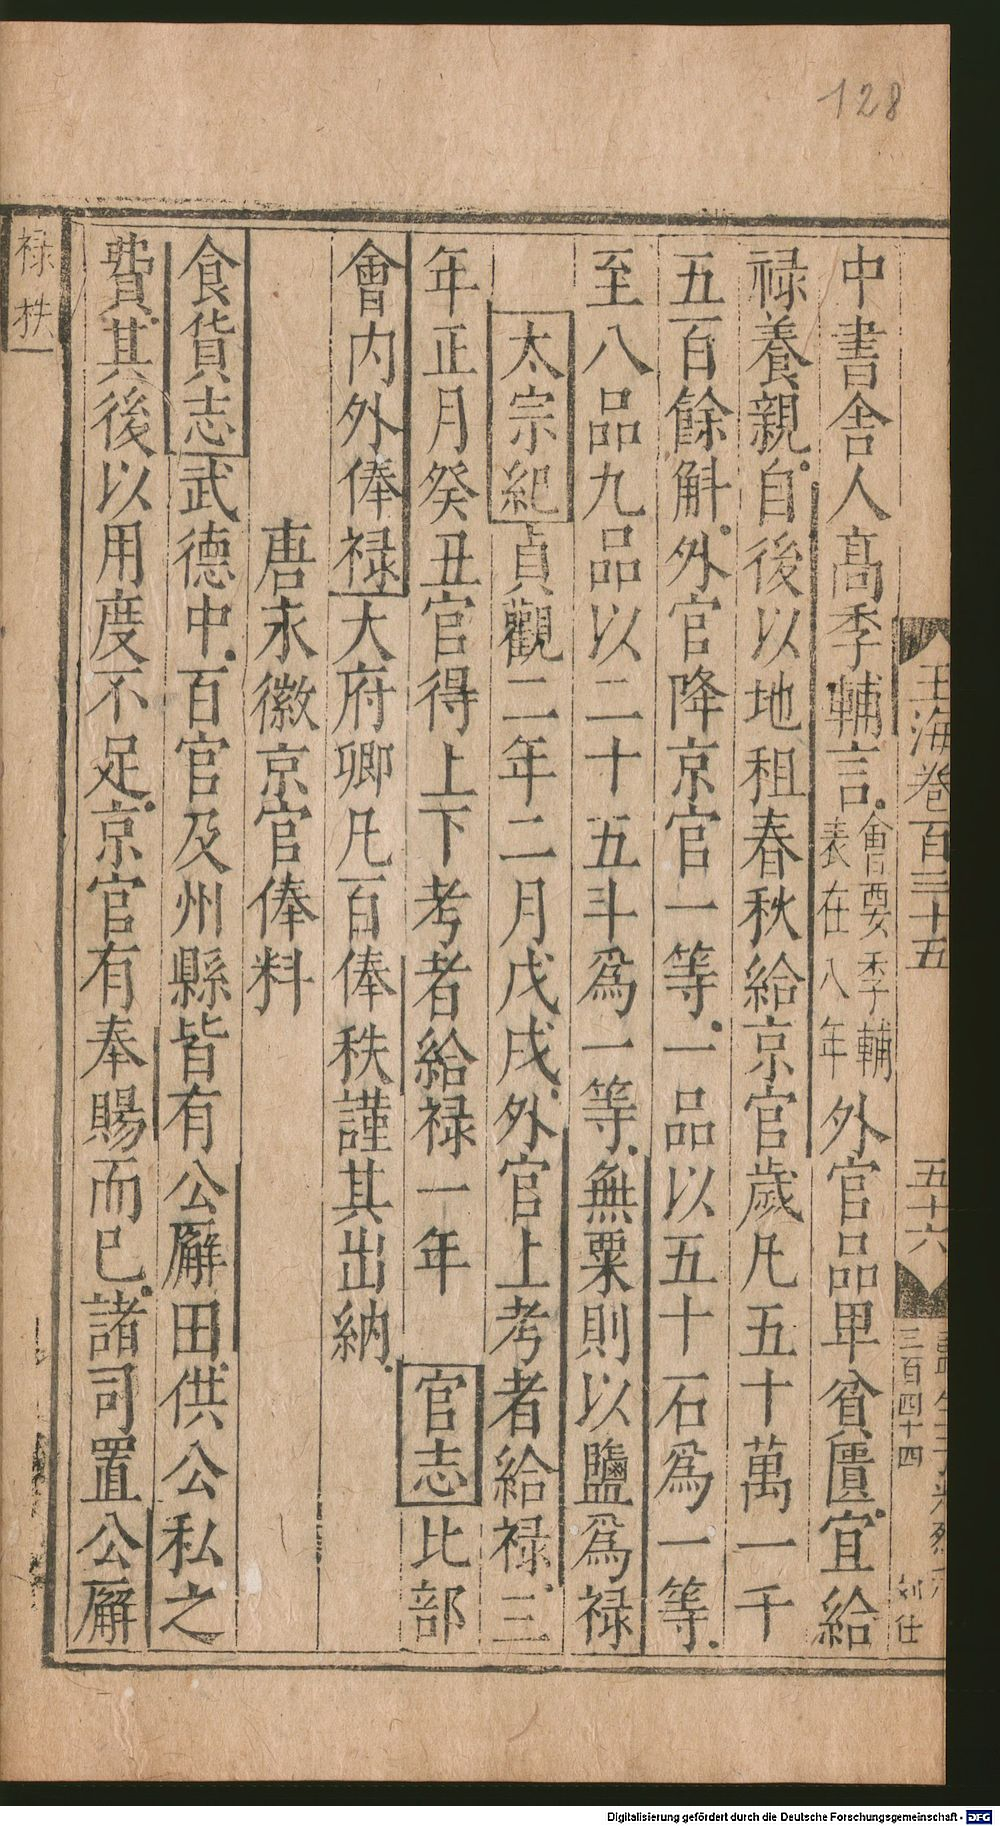 128
玉海卷百三十五
五十六
三百四十四
刘仕
中書舎人髙季輔言會要季輔表在八年外官品卑貧匱宜給
禄養親自後以地租春秋給京官歲凡五十萬一千
五百餘斛外官降京官一等一品以五十石爲一等
至八品九品以二十五斗爲一等無粟則以鹽爲禄
太宗紀貞觀二年二月戊戌外官上考者給禄三
年正月癸丑官得上下考者給禄一年 官志比部
會内外俸禄大府卿凡百俸秩謹其出納
唐永徽京官俸料
食貨志武德中百官及州縣皆有公廨田供公私之
費其後以用度不足京官有奉賜而已諸司置公廨
禄秩
Digitalisierung gefördert durch die Deutsche Forschungsgemeinschaft - DFG